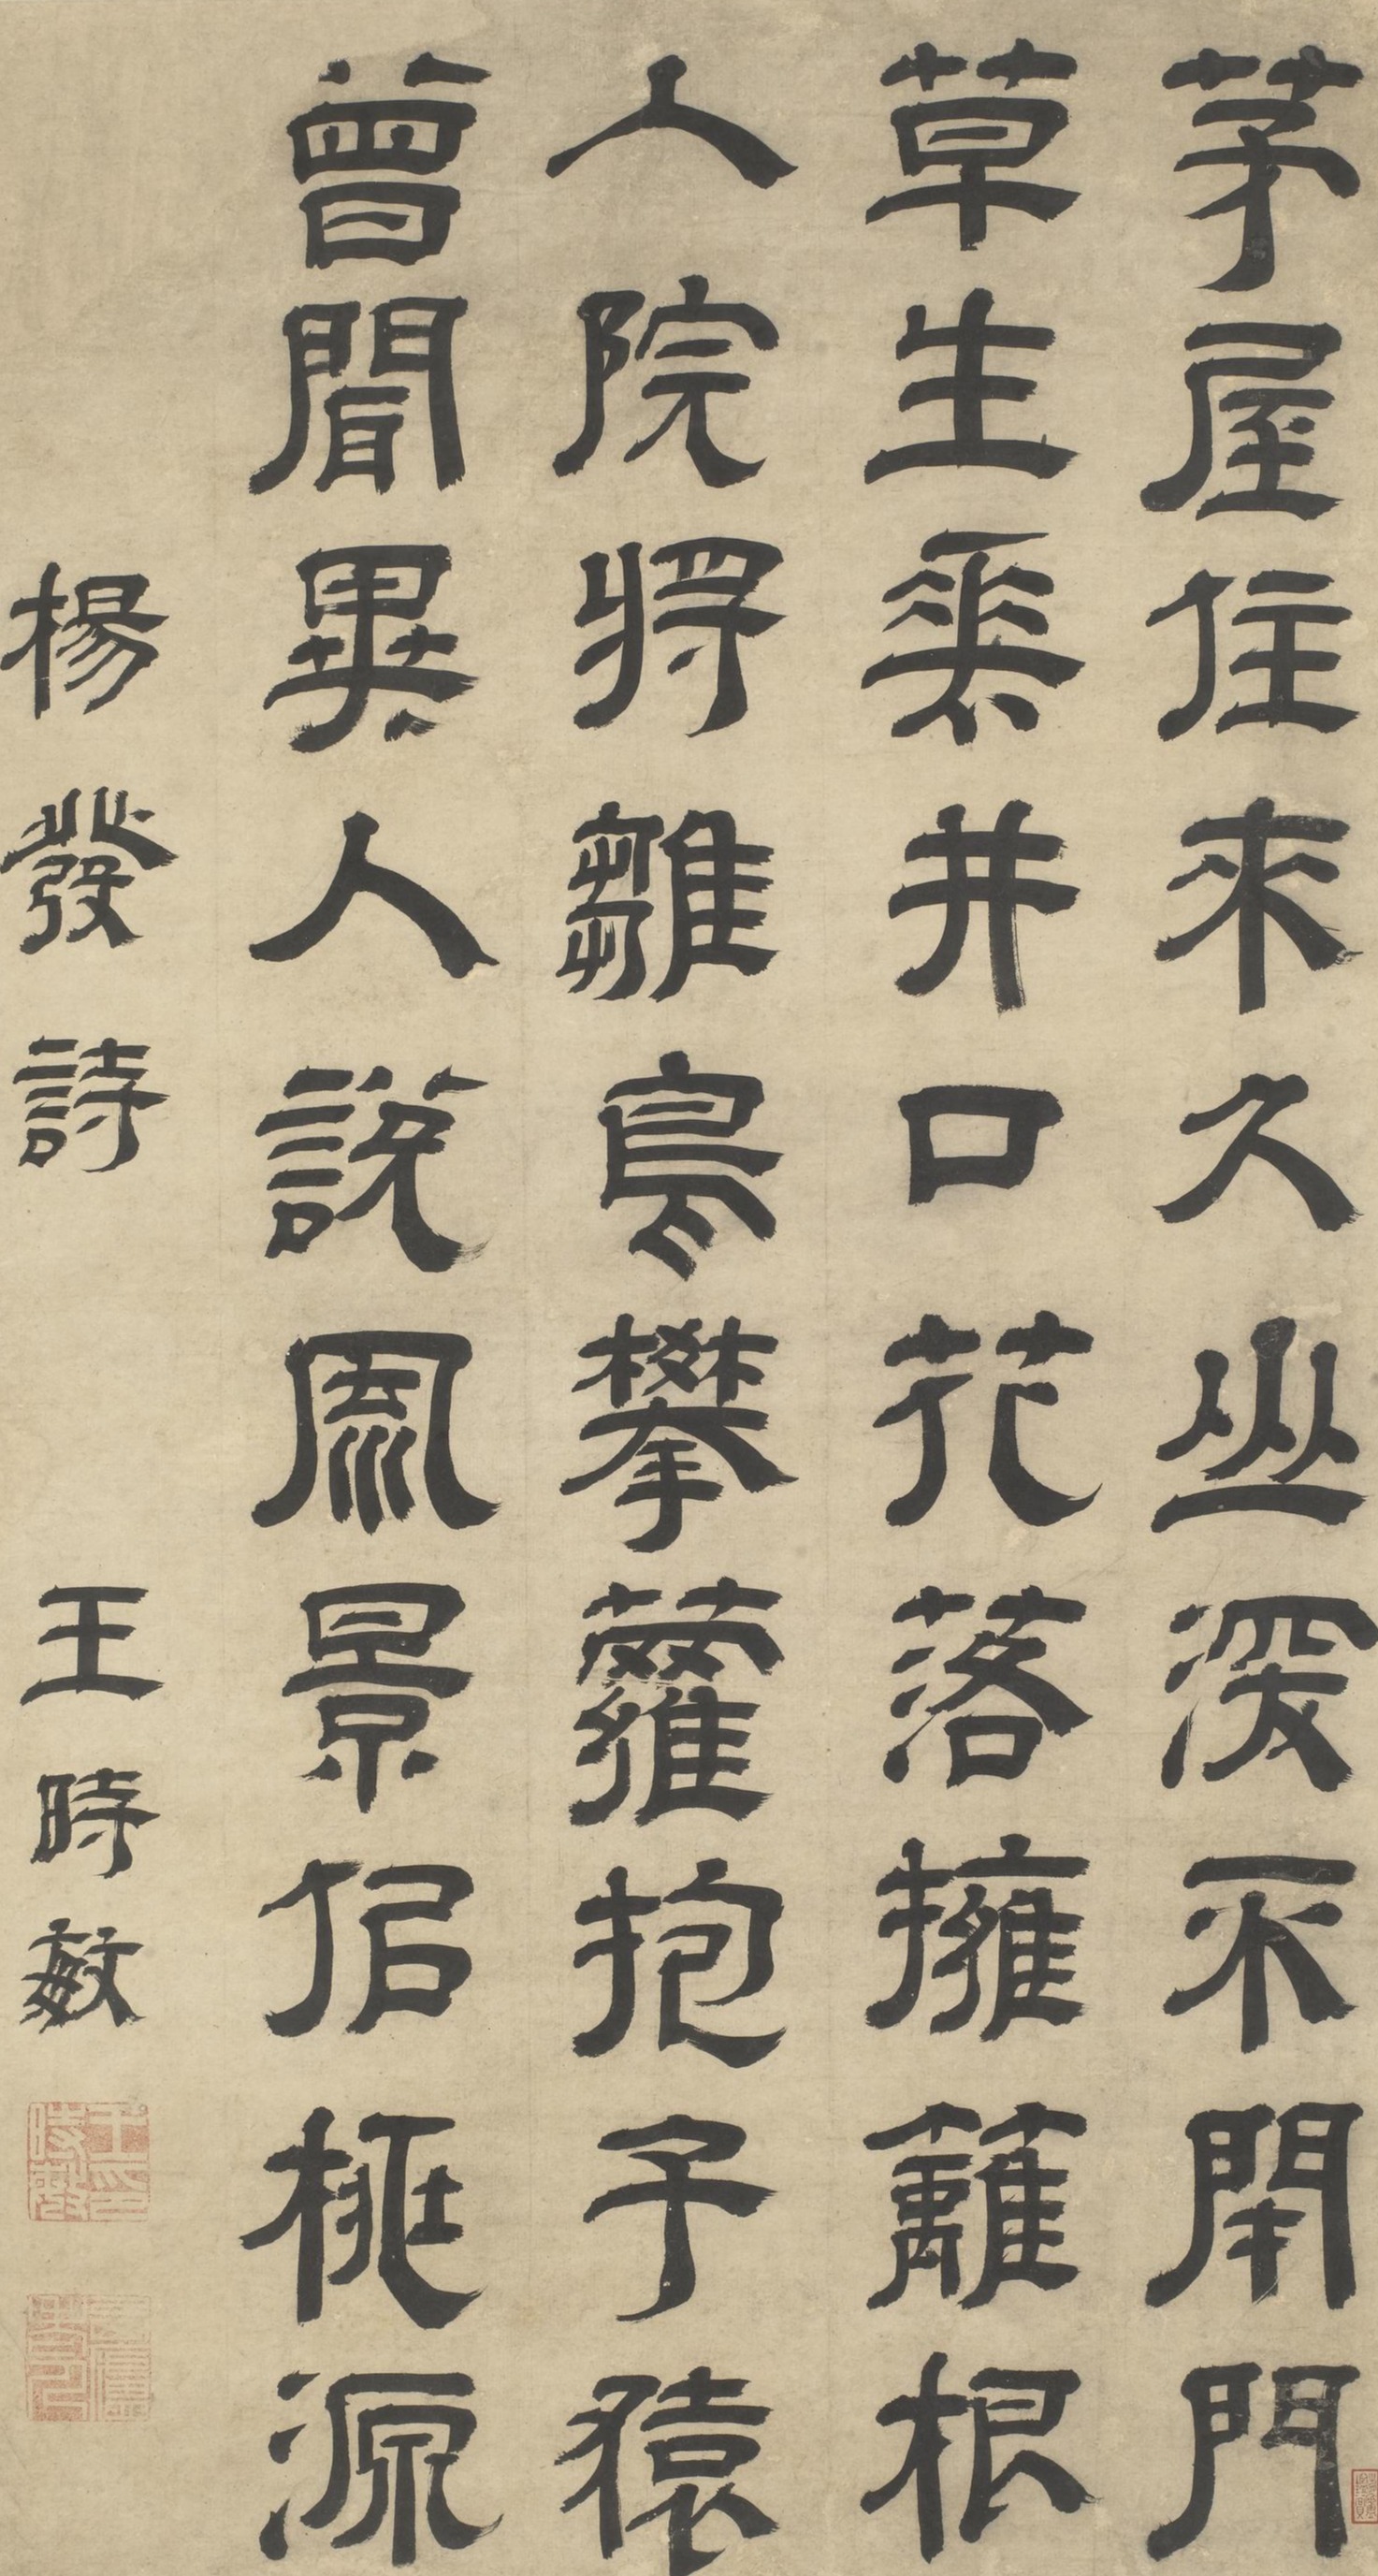 茅屋住來久山深不閉門
草生垂井口花落擁籬根
入院將雛鳥攀蘿抱子猿
曾聞異人說風景佀桃源
楊發詩 王時敏
王時敏印